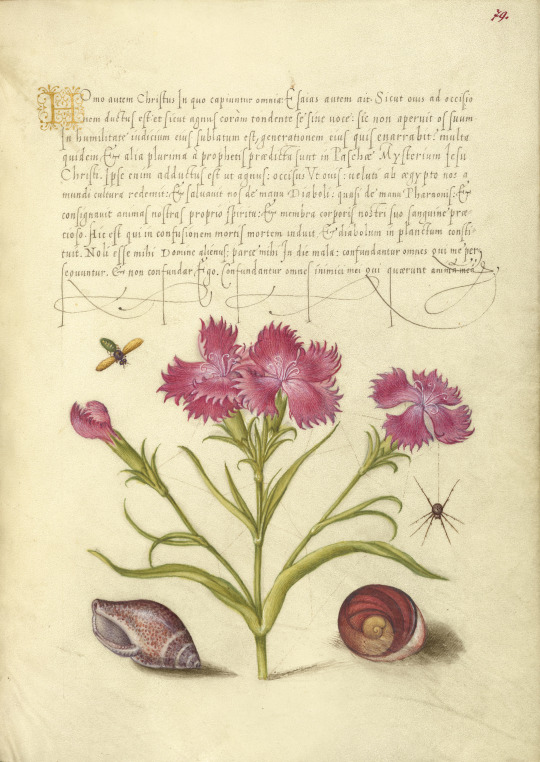 79.
Homo autem Christus In quo capiuntur omnia: Esaias autem ait. Sicut ouis ad occisio
nem ductus est: et sicut agnus coram tondente se sine uoce: sic non aperuit os suum
In humilitate iudicium eius sublatum est: generationem eius quis enarrabit: multa
quidem Et alia plurima à prophetis prædicta sunt in Paschæ Mysterium Iesu
Christi. Ipse enim adductus est ut agnus: occisus Vt ouis: ueluti ab ægypto nos a
mundi cultura redemit: Et saluauit nos de manu Diaboli: quasi de manu Pharaonis: Et
consignauit animas nostras proprio spiritu: Et membra corporis nostri suo sanguine præ
cioso. Hic est qui in confusionem mortis mortem induit, Et diabolum in planctum consti-
tuit. Noli esse mihi Domine alienus: parce mihi In die mala: confundantur omnes qui me per
sequuntur, Et non confundar Ego. Confundantur omnes inimici mei qui quærunt animam mea